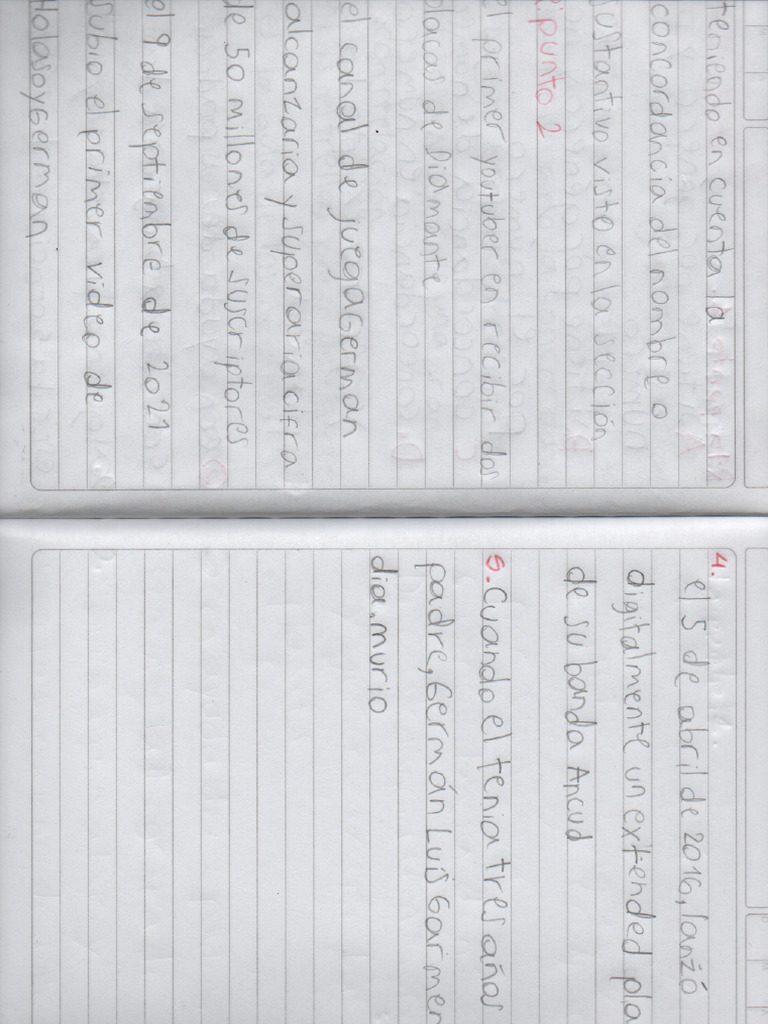 teniendo en cuenta la
concordancia del nombre o
sustantivo visto en la sección
punto 2
el primer youtuber en recibir dos
placas de Diamante
el canal de juegaGerman
alcanzaria y superaria cifra
de 50 millones de suscriptores
el 9 de septiembre de 2021
subio el primer video de
Holasoygerman
4.
el 5 de abril de 2016, lanzó
digitalmente un extended pla
de su banda Ancud
5. Cuando el tenia tres años
padre, Germán Luis Garmen
dia, murio